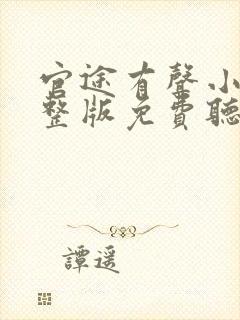 官途有聲小
整版免費聽
譚遥